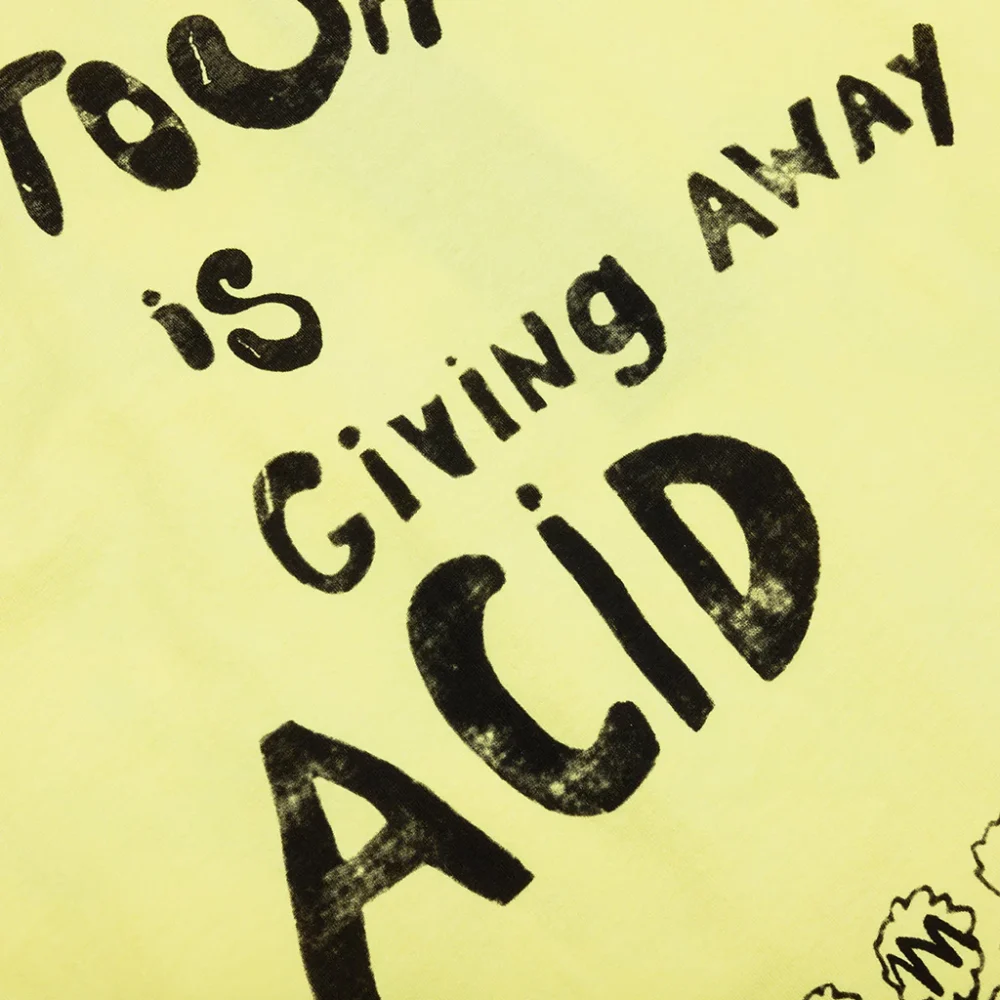 is
GiViNg AWAY
ACiD
M